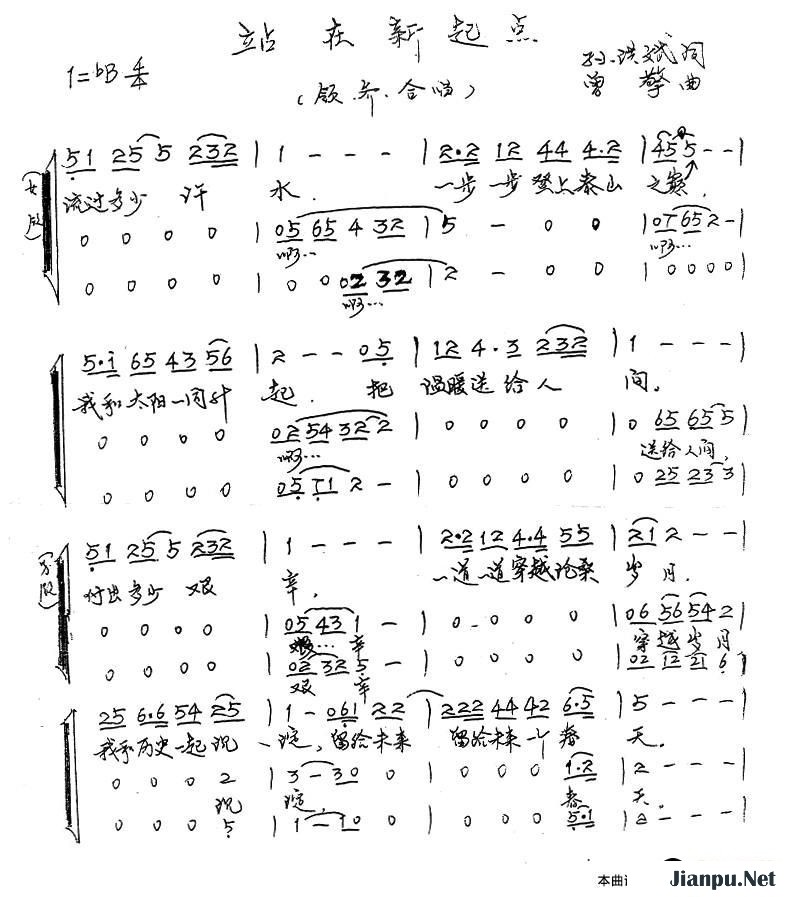 站在新起点
1=bB 4/4
(领、齐、合唱)
孙洪斌词
曾擎曲
(女领)
51 25 5 232 | 1 - - - | 2·2 12 44 4·2 | 45 5 - - |
流过多少 汗 水. 一步一步登上泰山之巅.
0 0 0 0 | 05 65 4 32 | 5 - 0 0 | 07 65 2 - |
啊… 啊…
0 0 0 0 | 0 0 02 32 | 2 - 0 0 | 0 0 0 0 |
啊…
5·i 65 43 56 | 2 - - 05 | 12 4·3 232 | 1 - - - |
我和太阳一同升 起. 把 温暖送给人 间.
0 0 0 0 | 02 54 32 2 | 0 0 0 0 | 0 65 65 5 |
啊… 送给人间,
0 0 0 0 | 05 71 2 - | 0 0 0 0 | 0 25 23 3 |
(男领)
51 25 5 232 | 1 - - - | 2·2 12 4·4 55 | 21 2 - - |
付出多少 艰 辛. 一道一道穿越沧桑 岁月.
0 0 0 0 | 05 43 1 - | 0 0 0 0 | 06 56 54 2 |
艰… 辛 穿越岁月
0 0 0 0 | 02 32 5 - | 0 0 0 0 | 02 12 21 6 |
艰 辛
25 6·6 54 25 | 1 - 061 22 | 222 44 42 6·5 | 5 - - - |
我和历史一起沉 淀, 留给未来 留给未来一个春 天.
0 0 0 2 | 3 - 30 0 | 0 0 0 1·2 | 2 - - - |
沉 淀. 春 天.
0 0 0 5 | 1 - 10 0 | 0 0 0 5·1 | 2 - - - |
本曲讠
Jianpu.Net